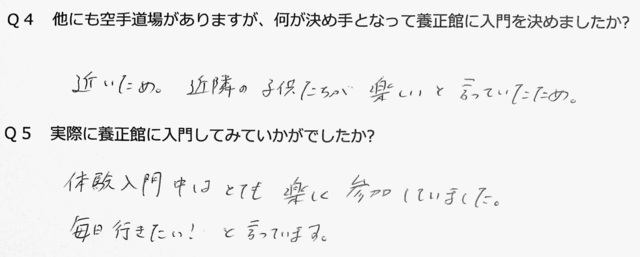 Q4 他にも空手道場がありますが、何が決め手となって養正館に入門を決めましたか?
近いため。近隣の子供たちが楽しいと言っていたため。
Q5 実際に養正館に入門してみていかがでしたか?
体験入門中はとても楽しく参加していました。
毎日行きたい!と言っています。